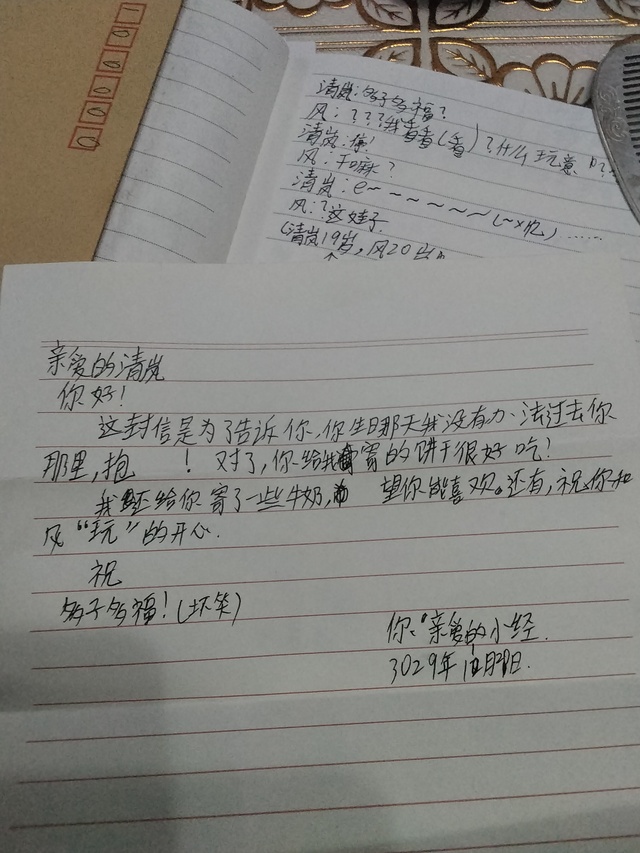 清岚:多子多福?
风:???我看看(看)?什么玩意
清岚:
风:干嘛?
清岚:e~~~~~~~(~×亿)……
风:?这娃子.
(清岚19岁,风20岁
亲爱的清岚
你好!
这封信是为了告诉你,你生日那天我没有办法过去你
那里,抱 ! 对了,你给我寄的饼干很好吃!
我还给你寄了一些牛奶, 望你能喜欢。还有,祝你和
风“玩”的开心.
祝
多子多福!(坏笑)
你:亲爱的小经.
3029年 月 日.